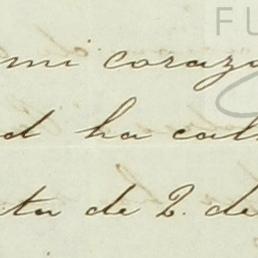 FU
mi coraz
d ha cal
ta de 2. de